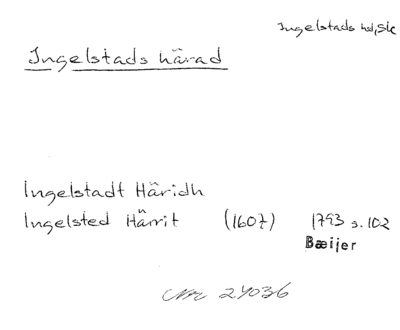 Ingelstads hd, Sk
Ingelstads härad
Ingelstadt Häridh
Ingelsted Härrit (1607) 1793 s. 102
Bæijer
Nr 24036